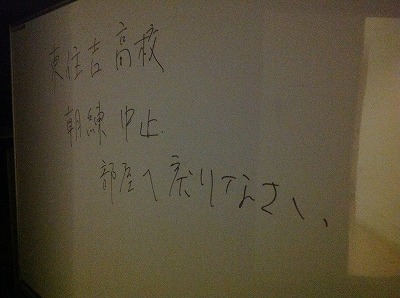 東住吉高校
朝練中止
部屋へ戻りなさい、